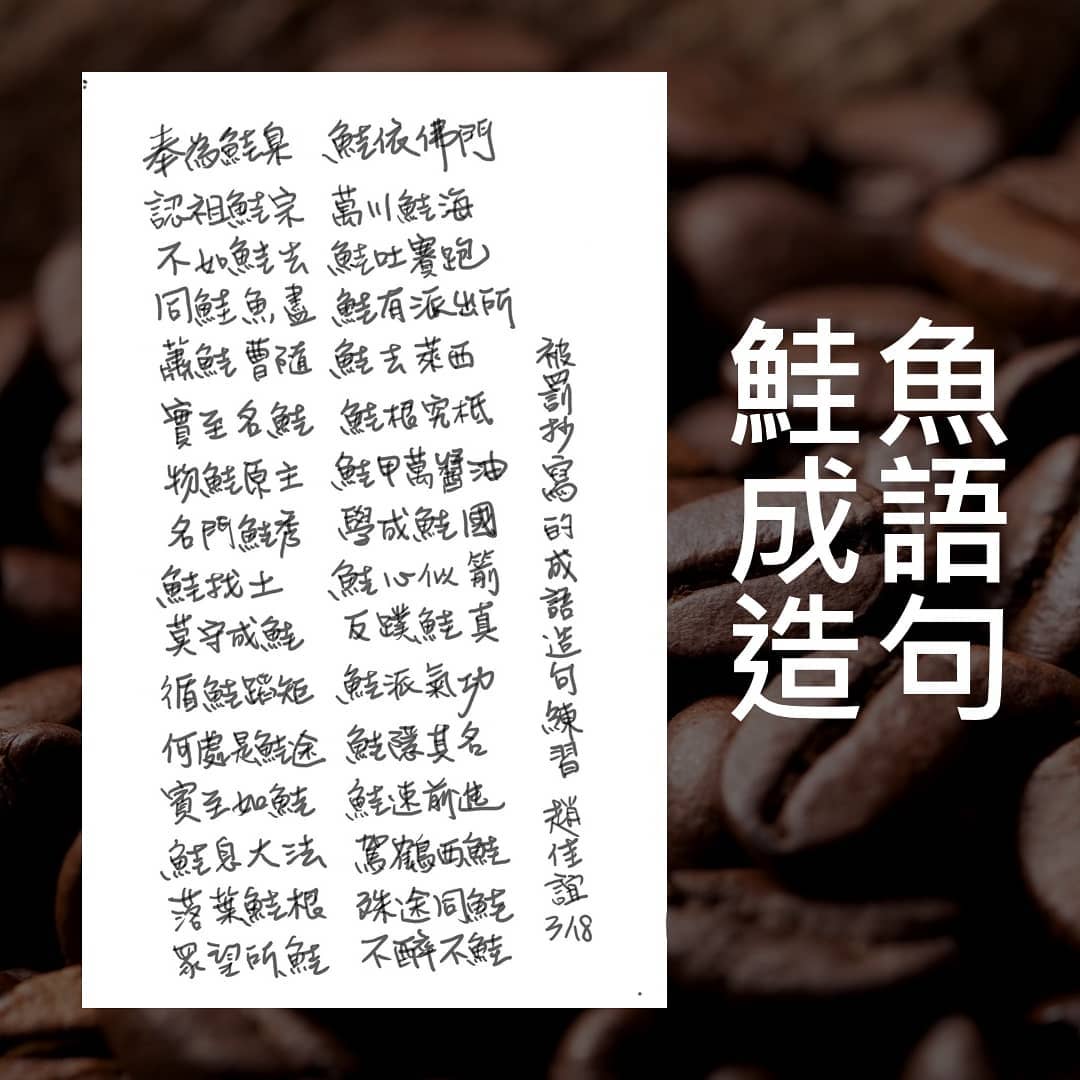 奉為鮭臬 鮭依佛門
認祖鮭宗 萬川鮭海
不如鮭去 鮭吐賽跑
同鮭魚盡 鮭有派出所
蕭鮭曹隨 鮭去萊西
實至名鮭 鮭根究柢
物鮭原主 鮭甲萬醬油
名門鮭秀 學成鮭國
鮭找土 鮭心似箭
莫守成鮭 反蹼鮭真
循鮭蹈矩 鮭派氣功
何處是鮭途 鮭隱其名
賓至如鮭 鮭速前進
鮭息大法 駕鶴西鮭
落葉鮭根 殊途同鮭
眾望所鮭 不醉不鮭
被罰抄寫的成語造句練習 趙佳誼 3/18
鮭魚
成語
造句